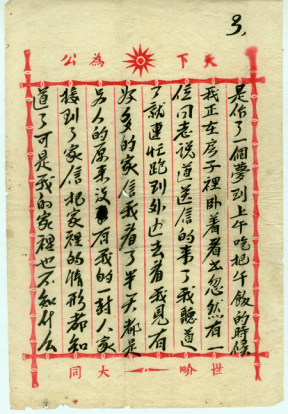 3,
天下為公
是作了一個夢到上午吃把午飯的時候
我正在房子裡卧着看書忽然有一
位同志說道送信的來了我聽道
了就連忙跑到外边去看我見有
好多的家信我看了半天都是
另人的原來没有我的一封人家
接到了家信把家裡的情形都知
道了可是我的家裡也不知什么
世界大同